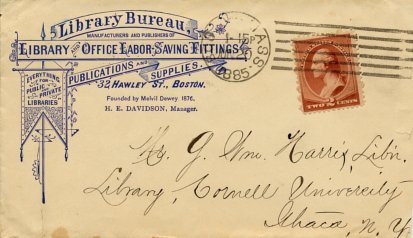 Library Bureau,
MANUFACTURERS AND PUBLISHERS OF
LIBRARY AND OFFICE LABOR-SAVING FITTINGS
PUBLICATIONS AND SUPPLIES.
32, HAWLEY ST., BOSTON.
Founded by Melvil Dewey 1876,
H. E. DAVIDSON, Manager.
EVERYTHING
FOR
PUBLIC AND PRIVATE
LIBRARIES
MASS
1885
TWO CENTS
Mr. G. Wm. Harris, Lib'n.
Library, Cornell University
Ithaca, N. Y.